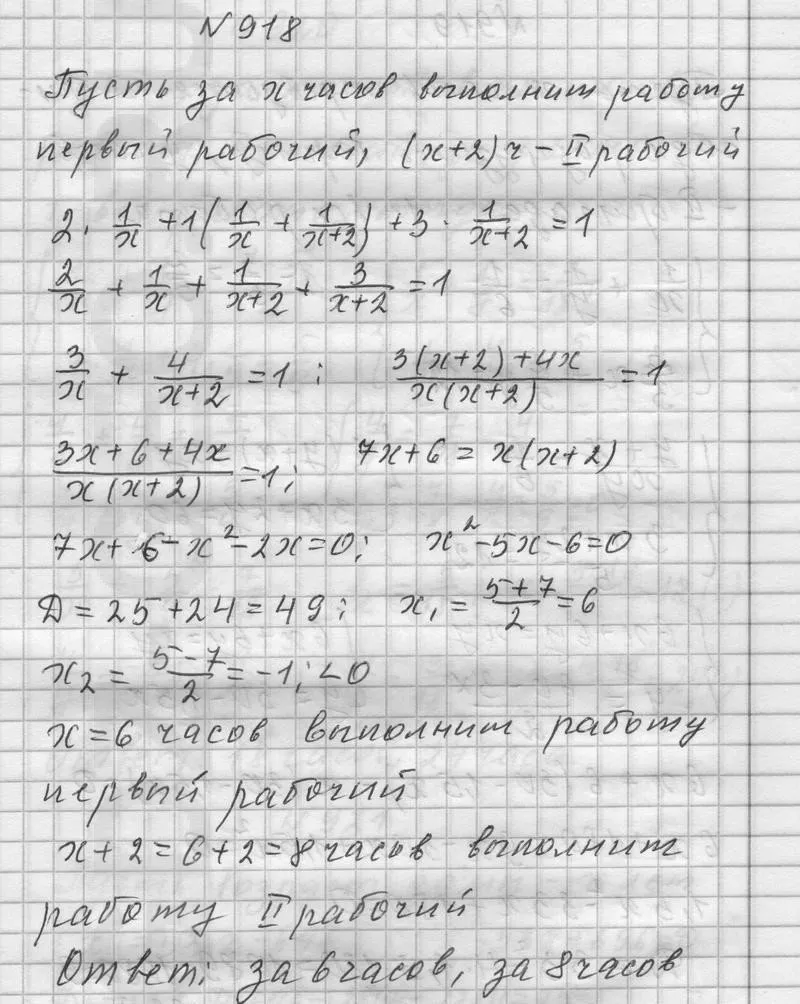 №918
Пусть за x часов выполнит работу
первый рабочий, (x+2)ч – II рабочий
2 · 1/x + 1(1/x + 1/(x+2)) + 3 · 1/(x+2) = 1
2/x + 1/x + 1/(x+2) + 3/(x+2) = 1
3/x + 4/(x+2) = 1; (3(x+2)+4x)/(x(x+2)) = 1
(3x+6+4x)/(x(x+2)) = 1; 7x+6 = x(x+2)
7x+6-x²-2x=0; x²-5x-6=0
Д = 25+24 = 49; x₁ = (5+7)/2 = 6
x₂ = (5-7)/2 = -1; <0
x=6 часов выполнит работу
первый рабочий
x+2=6+2=8 часов выполнит
работу II рабочий
Ответ: за 6 часов, за 8 часов